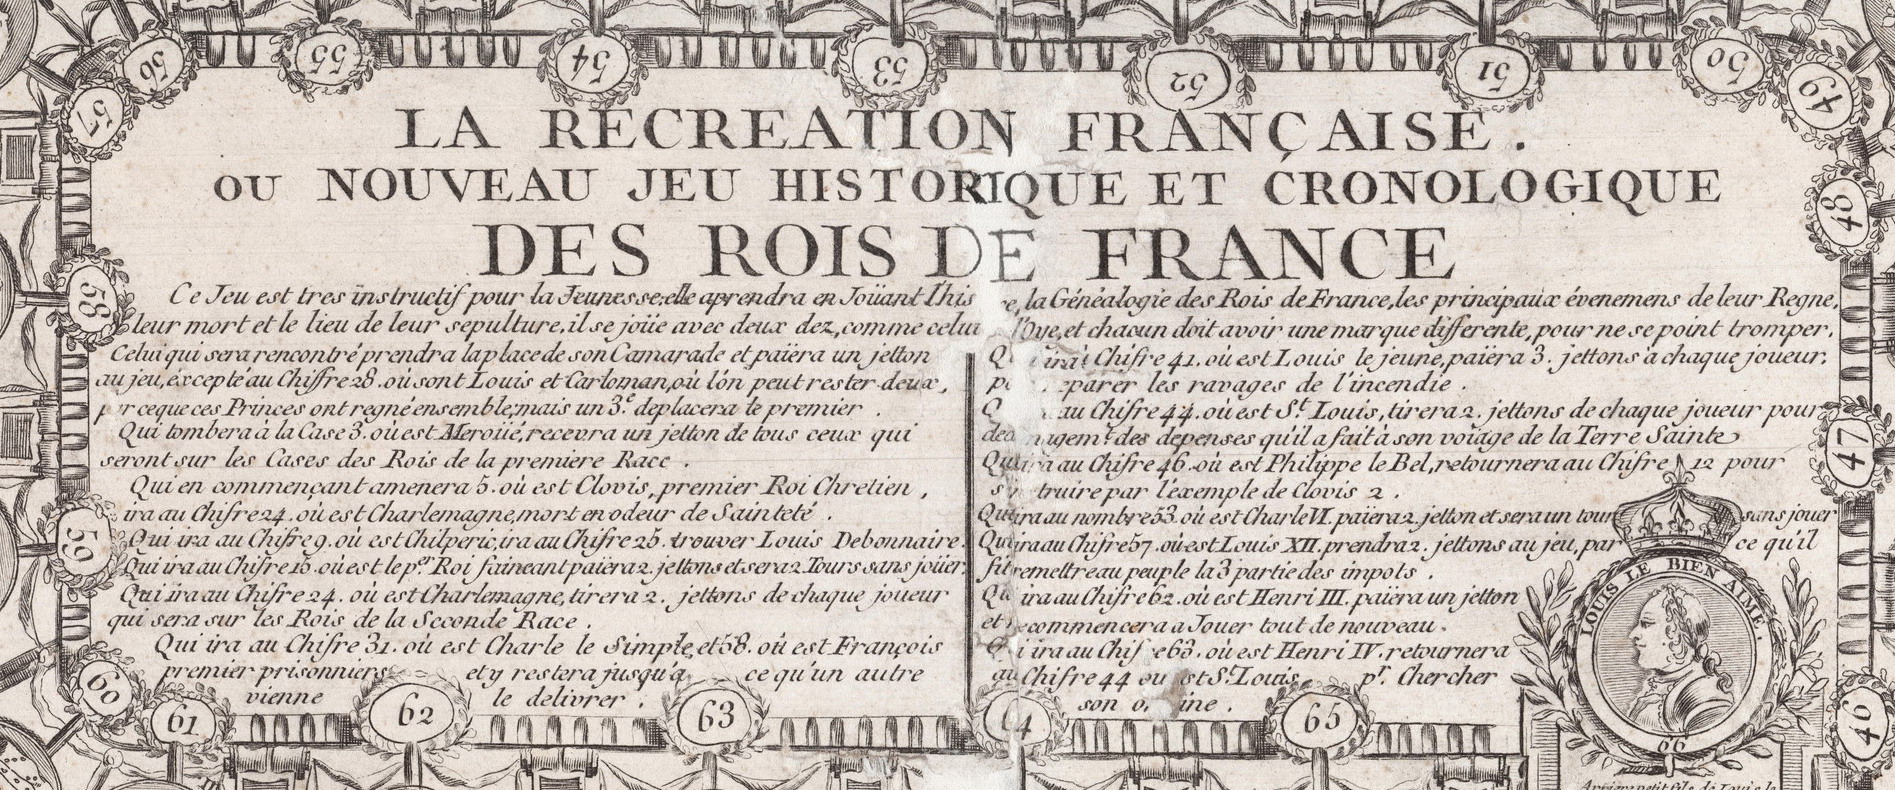 56 55 54 53 52 51 50 49
57
LA RÉCREATION FRANÇAISE.
OU NOUVEAU JEU HISTORIQUE ET CRONOLOGIQUE
48
DES ROIS DE FRANCE
58
Ce Jeu est tres instructif pour la Jeunesse; elle aprendra en Joüant l'his re, la Généalogie des Rois de France, les principaux évenemens de leur Regne,
leur mort et le lieu de leur sepulture. il se joüe avec deux dez, comme celui l'Oye, et chacun doit avoir une marque differente, pour ne se point tromper.
Celui qui sera rencontré prendra la place de son Camarade et païera un jetton
au jeu, excepté au Chiffre 28. où sont Louis et Carloman, où l'on peut rester deux,
parceque ces Princes ont regné ensemble; mais un 3.e deplacera le premier.
Qui tombera à la Case 3. où est Meroüé, recevra un jetton de tous ceux qui
seront sur les Cases des Rois de la premiere Race.
Qui en commençant amenera 5. où est Clovis, premier Roi Chretien,
ira au Chifre 24. où est Charlemagne, mort en odeur de Sainteté.
59
Qui ira au Chifre 9. où est Chilperic, ira au Chifre 25. trouver Louis Debonnaire.
Qui ira au Chifre 15. où est le p.er Roi faineant païera 2. jettons et sera 2. Tours sans joüer.
Qui ira au Chifre 24. où est Charlemagne, tirera 2. jettons de chaque joueur
qui sera sur les Rois de la Seconde Race.
Qui ira au Chifre 31. où est Charle le Simple, et 58. où est François
premier prisonniers et y restera jusqu'a ce qu'un autre
vienne le delivrer.
Qui ira Chifre 41. où est Louis le jeune, païera 3. jettons à chaque joueur.
parer les ravages de l'incendie.
au Chifre 44. où est S.t Louis, tirera 2. jettons de chaque joueur pour
des dépenses qu'il a fait à son voïage de la Terre Sainte
47
Qui ira au Chifre 46. où est Philippe le Bel, retournera au Chifre 12 pour
truire par l'éxemple de Clovis 2.
Qui ira au nombre 53. où est Charle VI. païera 2. jetton et sera un tour sans jouer
Qui ira au Chifre 57. où est Louis XII. prendra 2. jettons au jeu, par ce qu'il
fit remettre au peuple la 3 partie des impots.
Qui ira au Chifre 62. où est Henri III. païera un jetton
et recommencera a Jouer tout de nouveau.
Qui ira au Chifre 63. où est Henri IV. retournera
au Chifre 44 ou est St Louis p.r Chercher
son ine.
LOUIS LE BIEN AIMÉ.
66
60 61 62 63 64 65 46